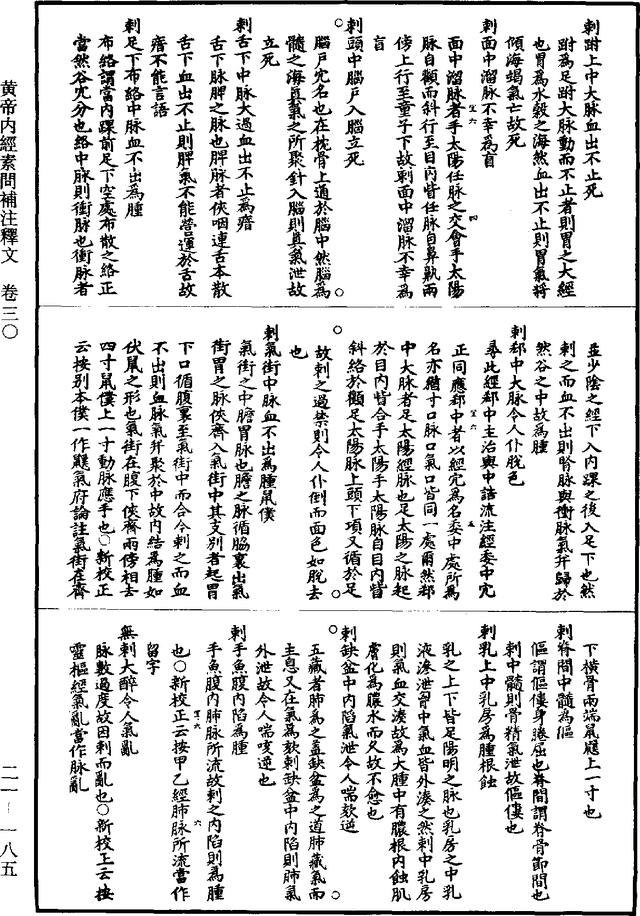 黄帝内經素問補注釋文　卷三〇
刺跗上中大脉血出不止死
跗為足跗大脉動而不止者則胃之大經
也胃為水穀之海然血出不止則胃氣將
傾海竭氣亡故死
刺面中溜脉不幸為盲
面中溜脉者手太陽任脉之交會手太陽
脉自顴而斜行至目内眥任脉自鼻鼽兩
傍上行至童子下故刺面中溜脉不幸為
盲
刺頭中腦户入腦立死
腦户穴名也在枕骨上通於腦中然腦為
髓之海真氣之所聚針入腦則真氣泄故
立死
刺舌下中脉大過血出不止為瘖
舌下脉脾之脉也脾脉者俠咽連舌本散
舌下血出不止則脾氣不能營運於舌故
瘖不能言語
刺足下布絡中脉血不出為腫
布絡謂當内踝前足下空處布散之絡正
當然谷穴分也絡中脉則衝脉也衝脉者
並少陰之經下入内踝之後入足下也然
刺之而血不出則腎脉與衝脉氣并歸於
然谷之中故為腫
刺郄中大脉令人仆脱色
尋此經郄中主治與中誥流注經委中穴
正同應郄中者以經穴為名委中處所為
名亦猶寸口脉口氣口皆同一處爾然郄
中大脉者足太陽經脉也足太陽之脉起
於目内眥合手太陽手太陽脉自目内眥
斜絡於顴足太陽脉上頭下項又循於足
故刺之過禁則令人仆倒而面色如脱去
也
刺氣街中脉血不出為腫鼠僕
氣街之中膽胃脉也膽之脉循脇裏出氣
街胃之脉俠齊入氣街中其支别者起胃
下口循腹裏至氣街中而合令刺之而血
不出則血脉氣并聚於中故内結為腫如
伏鼠之形也氣街在腹下俠齊兩傍相去
四寸鼠僕上一寸動脉應手也〇新校正
云按别本僕一作鼷氣府論註氣街在齊
下横骨兩端鼠鼷上一寸也
刺脊間中髓為傴
傴謂傴僂身踡屈也脊間謂脊骨節間也
刺中髓則骨精氣泄故傴僂也
刺乳上中乳房為腫根蝕
乳之上下皆足陽明之脉也乳房之中乳
液滲泄胷中氣血皆外湊之然刺中乳房
則氣血交湊故為大腫中有膿根内蝕肌
膚化為膿水而久故不愈也
刺缺盆中内陷氣泄令人喘欬逆
五藏者肺為之蓋缺盆為之道肺藏氣而
主息又在氣為欬刺缺盆中内陷則肺氣
外泄故令人喘唆逆也
刺手魚腹内陷為腫
手魚腹内肺脉所流故刺之内陷則為腫
也〇新校正云按甲乙經肺脉所流當作
留字
無刺大醉令人氣亂
脉數過度故因刺而亂也〇新校正云按
靈樞經氣亂當作脉亂
二一—一八五